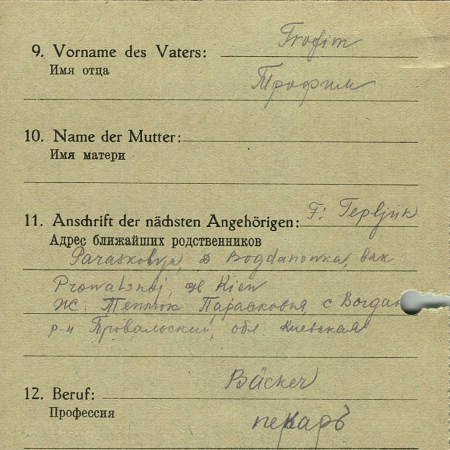 9. Vorname des Vaters: Trofim
Имя отца Трофим
10. Name der Mutter:
Имя матери
11. Anschrift der nächsten Angehörigen: F: Tepljuk
Адрес ближайших родственников
Paraskowja, D Bogdanowka,
Prowalskoj, Kiew
Ж. Теплюк Парасковья, с Bogdan
р-н Провальский, обл. Киевская
12. Beruf: Bäcker
Профессия пекарь